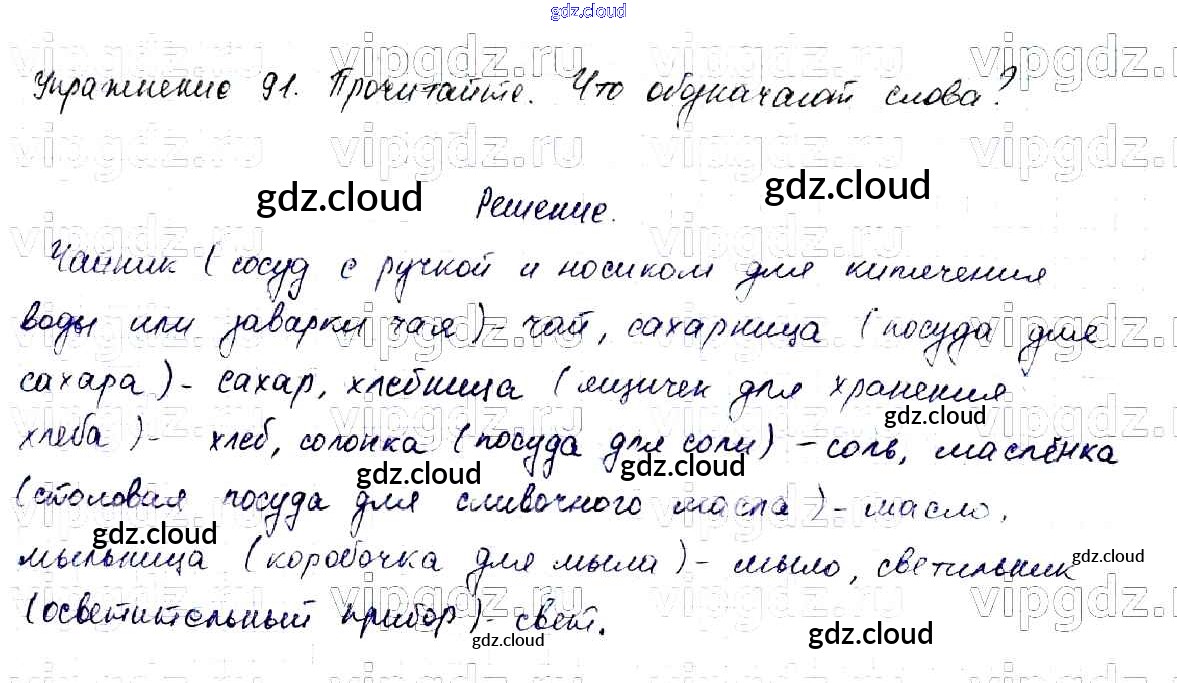 gdz.cloud
vipgdz.ru vipgdz.ru vipgdz.ru vipgdz.ru
Упражнение 91. Прочитайте. Что обозначают слова?
vipgdz.ru vipgdz.ru vipgdz.ru vipgdz.ru
gdz.cloud gdz.cloud
Решение.
Чайник (сосуд с ручкой и носиком для кипячения
воды или заварки чая) - чай, сахарница (посуда для
сахара) - сахар, хлебница (ящичек для хранения
gdz.cloud
хлеба) - хлеб, солонка (посуда для соли) - соль, маслёнка
gdz.cloud gdz.cloud
(столовая посуда для сливочного масла) - масло,
gdz.cloud
мыльница (коробочка для мыла) - мыло, светильник
gdz.cloud
(осветительный прибор) - свет.
gdz.cloud gdz.cloud